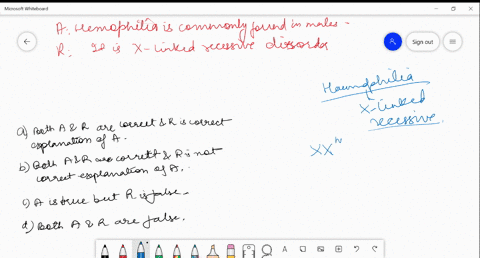 Microsoft Whiteboard
A: Hemophilia is commonly found in males.
R: It is X-linked recessive disorder
Sign out
Haemophilia
X-linked
recessive.
XXʰ
a) Both A & R are correct & R is correct
explanation of A.
b) Both A & R are correct & R is not
correct explanation of A.
c) A is true but R is false.
d) Both A & R are false.